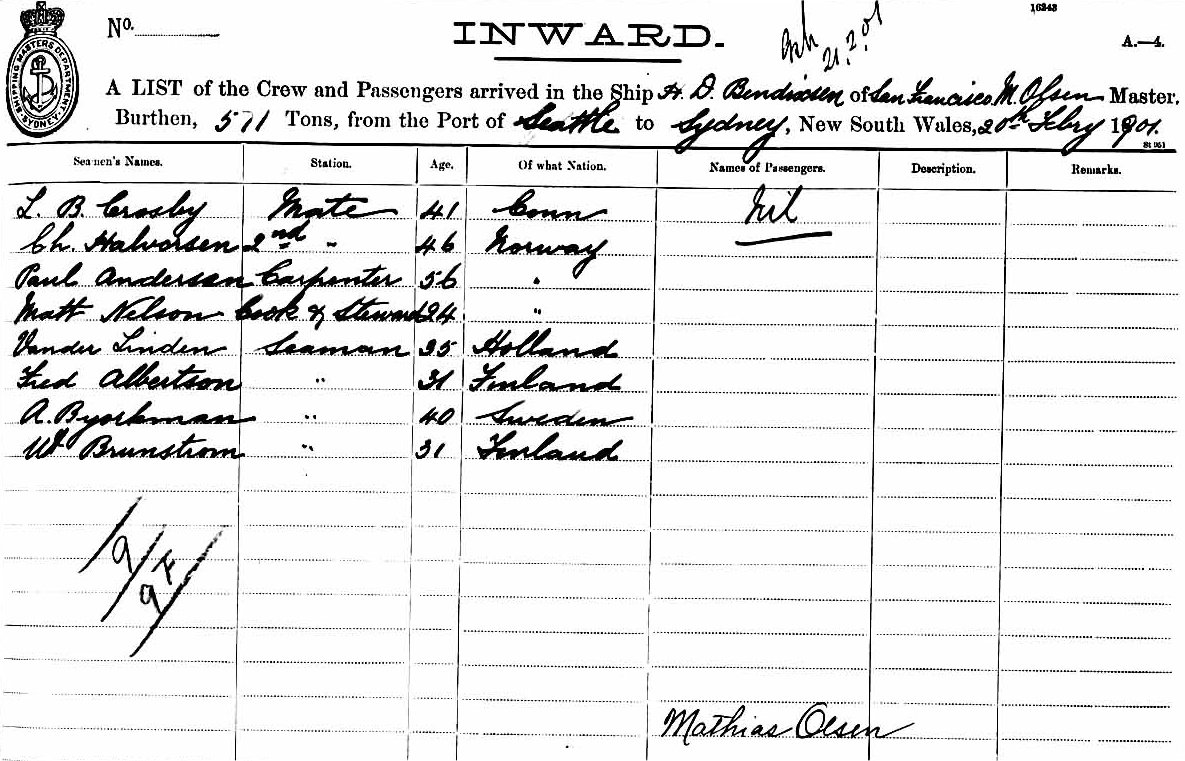 16343
No.
INWARD.
21.2.01
A.—4.
SHIPPING MASTERS DEPARTMENT SYDNEY
A LIST of the Crew and Passengers arrived in the Ship H. D. Bendixsen of San Francisco M. Olsen Master.
Burthen, 571 Tons, from the Port of Seattle to Sydney, New South Wales, 20th Febry 1901.
St 951
Seamen's Names. Station. Age. Of what Nation. Names of Passengers. Description. Remarks.
L. B. Crosby Mate 41 Conn Nil
Ch. Halvorsen 2nd " 46 Norway
Paul Andersen Carpenter 56 "
Matt Nelson Cook & Steward 24 "
Vander Linden Seaman 25 Holland
Fred Albertson " 31 Finland
A. Byorkman " 40 Sweden
W Brunstrom " 31 Finland
9
9
Mathias Olsen